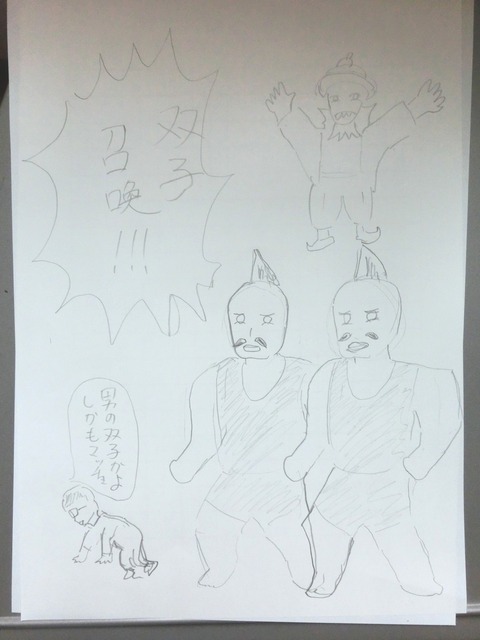 双子
召喚
!!!
男の双子かよ
しかもマッチョ